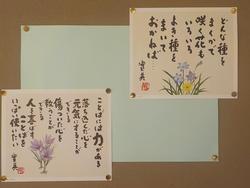 どんな種
まくかで
咲く花も
いろいろ
よき種を
まいて
おかねば
ことばには力がある
落ち込んだ心を
元気にすることが
できる
傷ついた心を
救うことが
できる
人を喜ばす
ことばを
いっぱい使いたい